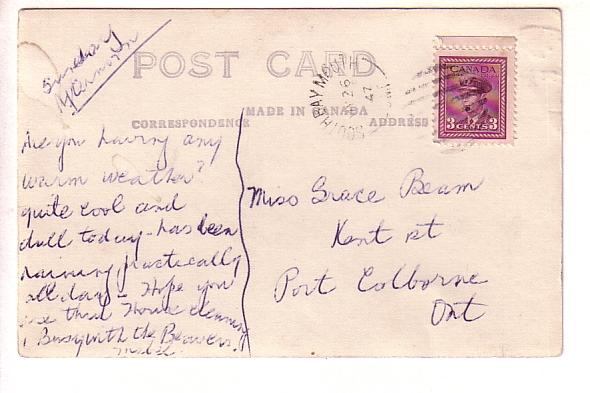 Sunday
POST CARD
MADE IN CANADA
CORRESPONDENCE
ADDRESS
SOUTH BAYMOUTH
26
47
CANADA
3 CENTS 3
Are you having any
warm weather?
quite cool and
dull today - has been
raining practically
all day - Hope you
are thru House cleaning
Busy with the Beavers.
Miss Grace Beam
Kent st
Port Colborne
Ont